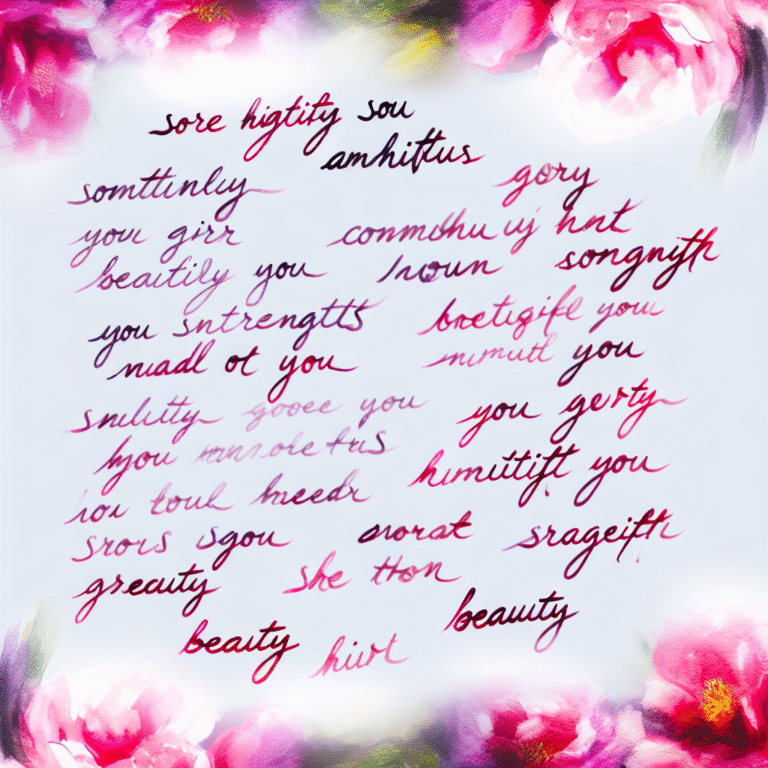 sore higtity sou
amhittus
somttinly gory
you girr conmdhu uj hnt
beautily you songnyth
you sntrengtts bretigife you
madl ot you mimutl you
snility gooee you you gerty
you humititift you
toul hreedr
srors sgou morat srageifth
greauty she tton
beauty beauuty
hiirt